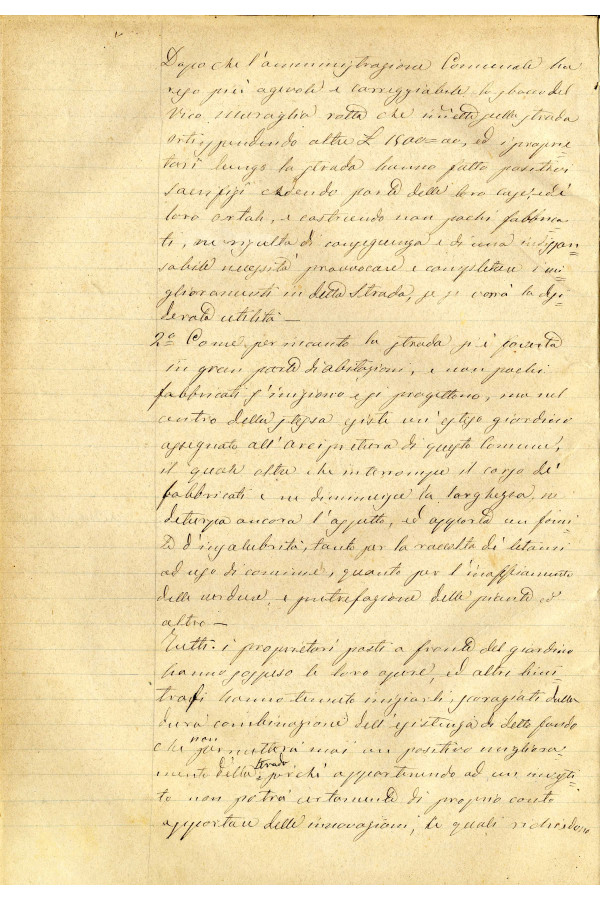 Dopo che l'amministrazione Comunale ha
reso più agevole e carreggiabile lo sbocco del
Vico Muraglia rotta che immette nella strada
Orti, spendendo oltre £ 1500=00, ed i proprie=
tari lungo la strada hanno fatto positivi
sacrifizi cedendo parte delle loro case, ed i
loro ortali, e costruendo non pochi fabbrica=
ti, ne risulta di conseguenza e di una indispen=
sabile necessità provvocare e completare i mi=
glioramenti in detta Strada, se si vorrà la desi=
derata utilità —
2º Come per incanto la strada si è coverta
in gran parte di abitazioni, e non pochi
fabbricati s'iniziono e si progettono, ma nel
centro della stessa esiste un'esteso giardino
assegnato all'Arcipretura di questo Comune,
il quale oltre che interrompe il corso de'
fabbricati e ne diminuisce la larghezza, ne
deturpa ancora l'aspetto, ed apporta un fomi=
te d'insalubrità, tanto per la raccolta di letami
ad uso di concime, quanto per l'inaffiamento
delle verdure, e putrefazione delle piante ed
altro —
Tutti i proprietari posti a fronte del giardino
hanno sospeso le loro opere, ed altri limi=
trofi hanno temuto iniziarli, scoragiati dalla
dura combinazione dell'esistenza di detto fondo
che non permetterà mai un positivo migliora=
mento della strada, perché appartenendo ad un investi=
to non potrà certamente di proprio conto
apportare delle innovazioni, le quali richiedono